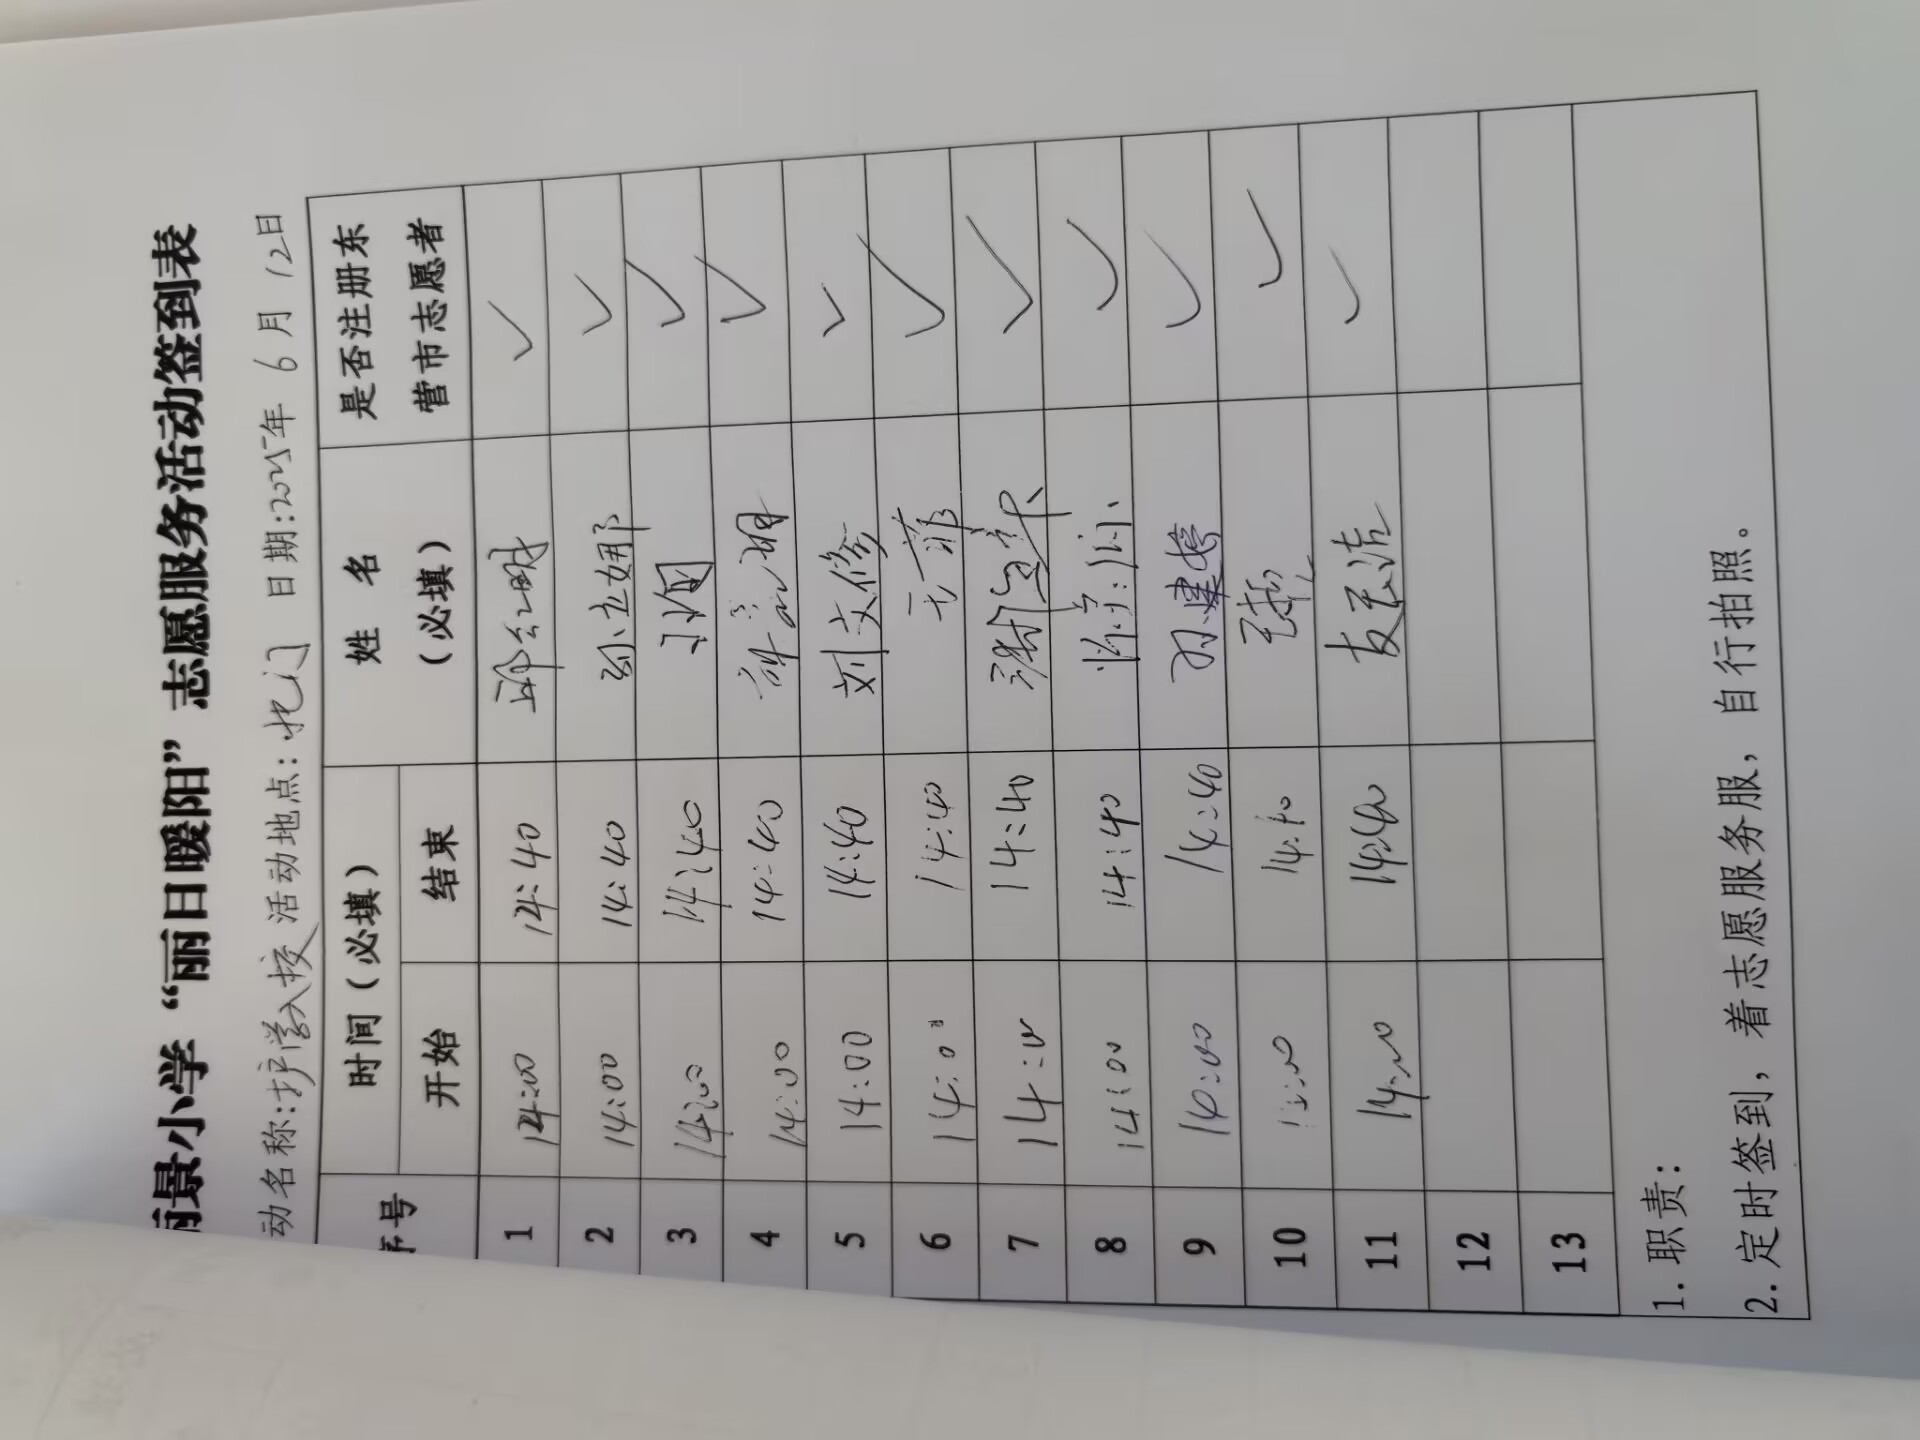 景小学“丽日暖阳”志愿服务活动签到表
动名称:护学入校 活动地点:北门 日期:2025年6月12日
序号 时间(必填) 姓名(必填) 是否注册东营市志愿者
开始 结束
1 14:00 14:40 ✓
2 14:00 14:40 孙立娜 ✓
3 14:00 14:40 ✓
4 14:00 14:40 ✓
5 14:00 14:40 刘文修 ✓
6 14:00 14:40 ✓
7 14:00 14:40 ✓
8 14:00 14:40 ✓
9 14:00 14:40 ✓
10 14:40 ✓
11 14:00 14:40 ✓
12
13
1.职责:
2.定时签到,着志愿服务服,自行拍照。